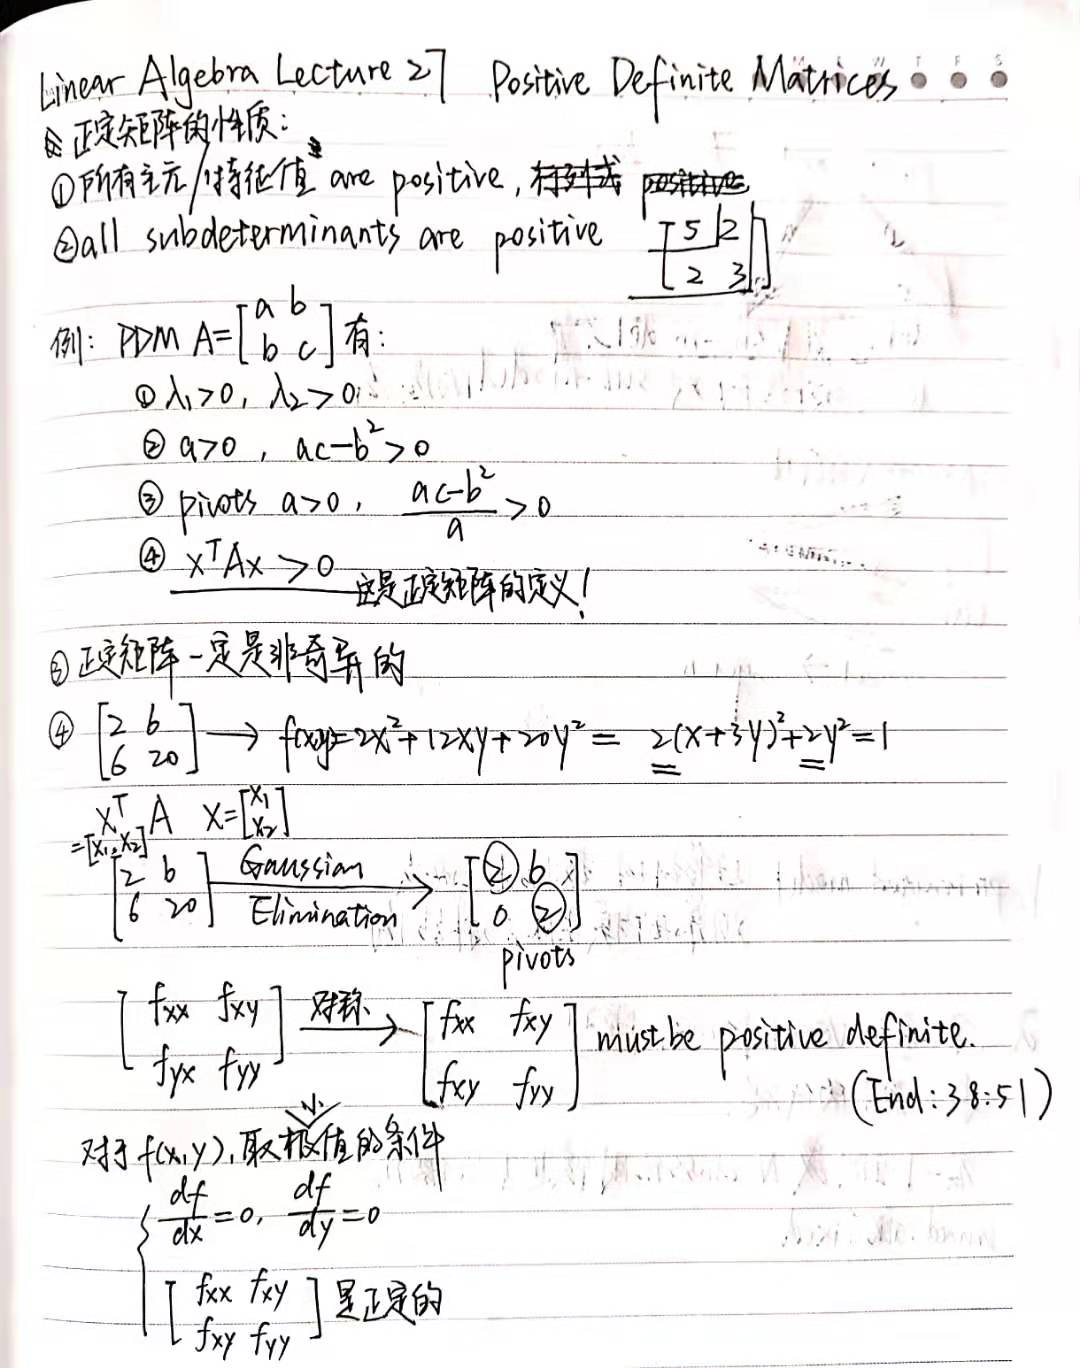 Linear Algebra Lecture 27 Positive Definite Matrices
正定矩阵的性质:
①所有主元/特征值 are positive, 行列式 positive
②all subdeterminants are positive [5 2
2 3]
例: PDM A=[a b
b c] 有:
① λ₁>0, λ₂>0
② a>0, ac-b²>0
③ pivots a>0, (ac-b²)/a >0
④ xᵀAx >0 这是正定矩阵的定义!
③正定矩阵一定是非奇异的
④ [2 6
6 20] → f(xy)=2x²+12xy+20y² = 2(x+3y)²+2y²=1
xᵀ A x=[x₁
x₂]
=[x₁,x₂]
[2 6
6 20] Gaussian Elimination → [2 6
0 2]
pivots
[fxx fxy
fyx fyy] 对称 → [fxx fxy
fxy fyy] must be positive definite.
(End:38:51)
小
对于f(x,y),取极值的条件
df/dx=0, df/dy=0
[fxx fxy
fxy fyy] 是正定的